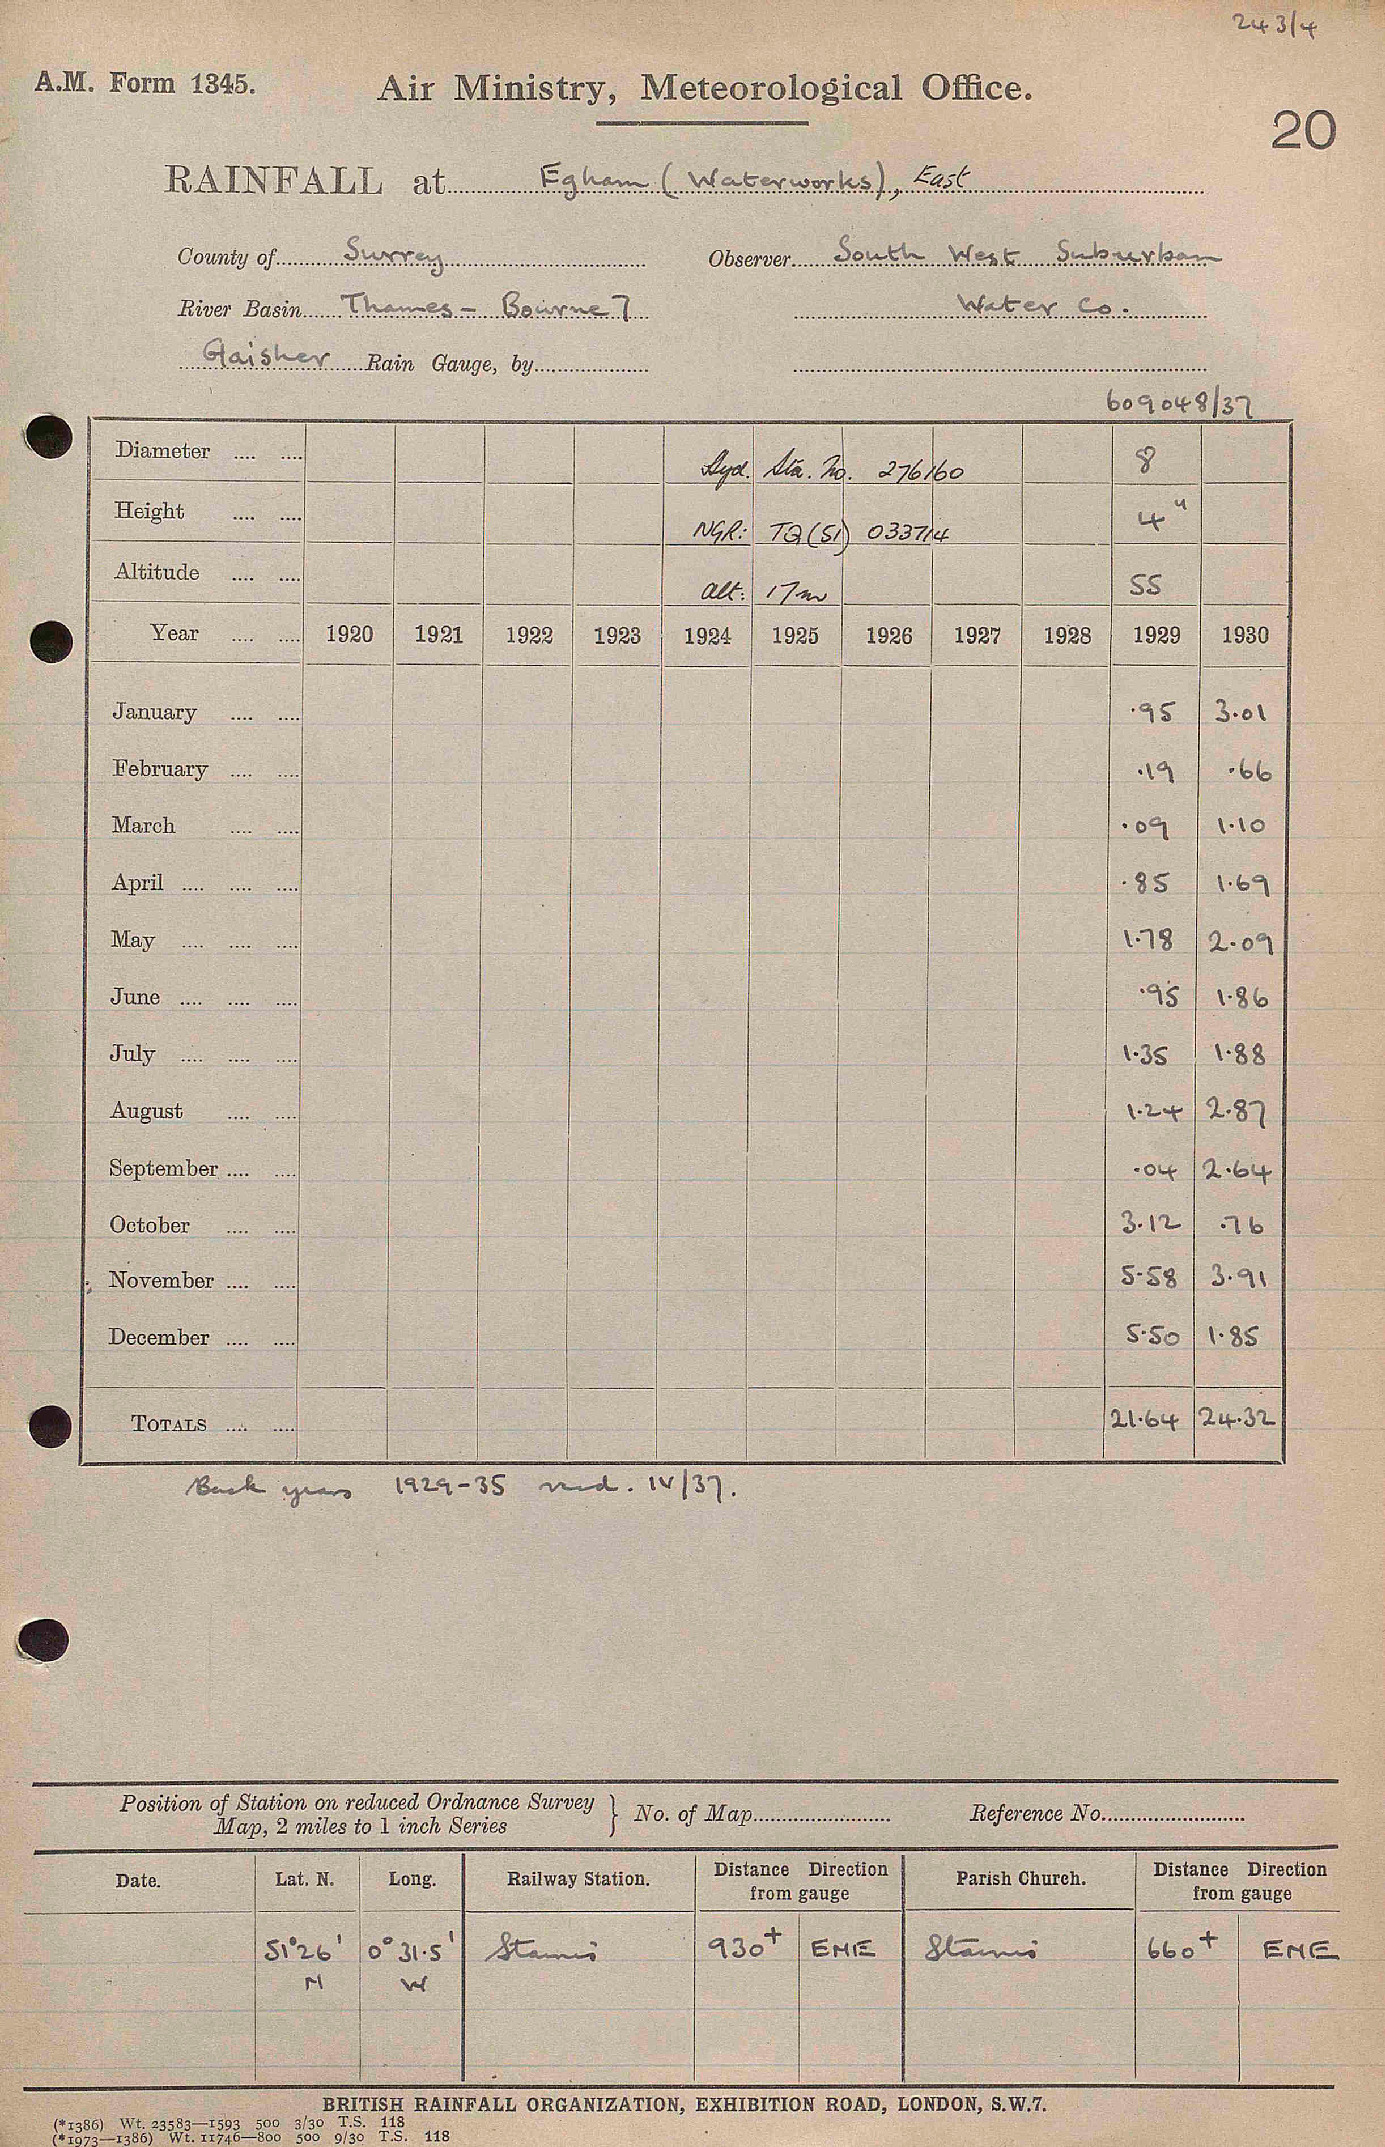 243/4
A.M. Form 1345. Air Ministry, Meteorological Office.
20
RAINFALL at Egham (Waterworks), East
County of Surrey Observer South West Suburban
River Basin Thames - Bourne 7 Water Co.
Glaisher Rain Gauge, by
609048/37
Diameter .... .... Hyd. Sta. No. 276160 8
Height .... .... NGR: TQ(51) 033714 4"
Altitude .... .... alt: 17m 55
Year .... .... 1920 1921 1922 1923 1924 1925 1926 1927 1928 1929 1930
January .... .... ·95 3·01
February .... .... ·19 ·66
March .... .... ·09 1·10
April .... .... .... ·85 1·69
May .... .... .... 1·78 2·09
June .... .... .... ·95 1·86
July .... .... .... 1·35 1·88
August .... .... 1·24 2·87
September .... .... ·04 2·64
October .... .... 3·12 ·76
November .... .... 5·58 3·91
December .... .... 5·50 1·85
TOTALS .... .... 21·64 24·32
Back years 1929-35 14/37.
Position of Station on reduced Ordnance Survey
Map, 2 miles to 1 inch Series } No. of Map Reference No.
Date. Lat. N. Long. Railway Station. Distance Direction from gauge Parish Church. Distance Direction from gauge
51°26' N 0°31·5' W Staines 930+ ENE Staines 660+ ENE
BRITISH RAINFALL ORGANIZATION, EXHIBITION ROAD, LONDON, S.W.7.
(*1386) Wt. 23583—1593 500 3/30 T.S. 118
(*1973—1386) Wt. 11746—800 500 9/30 T.S. 118